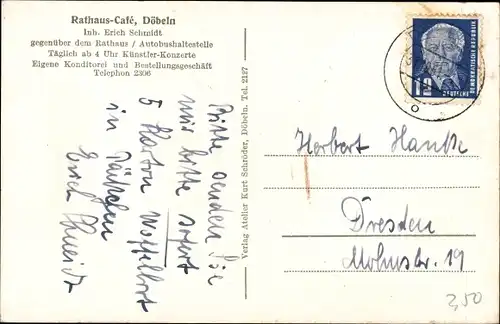 Rathaus-Café, Döbeln
Inh. Erich Schmidt
gegenüber dem Rathaus / Autobushaltestelle
Täglich ab 4 Uhr Künstler-Konzerte
Eigene Konditorei und Bestellungsgeschäft
Telephon 2306
Bitte senden Sie
mir bitte sofort
5 Karton
in
Erich Schmidt
Verlag Atelier Kurt Schröder, Döbeln. Tel. 2127
12
DEUTSCHE
DEMOKRATISCHE REPUBLIK
Herbert Hanke
Dresden
19
2,50